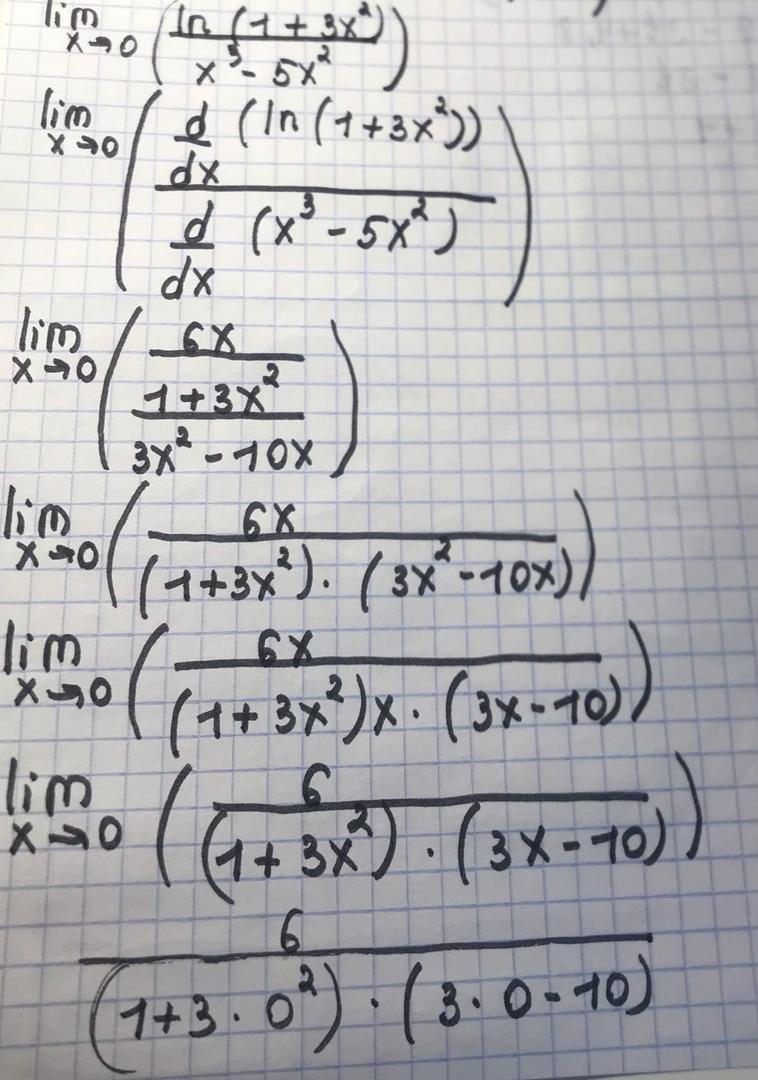 lim x→0 (ln (1 + 3x²) / x³ - 5x²)
lim x→0 (d/dx (ln (1+3x²)) / d/dx (x³ - 5x²))
lim x→0 (6x / 1+3x² / 3x² - 10x)
lim x→0 (6x / (1+3x²) · (3x² - 10x))
lim x→0 (6x / (1+3x²)x · (3x - 10))
lim x→0 (6 / (1+3x²) · (3x - 10))
6 / (1+3 · 0²) · (3 · 0 - 10)